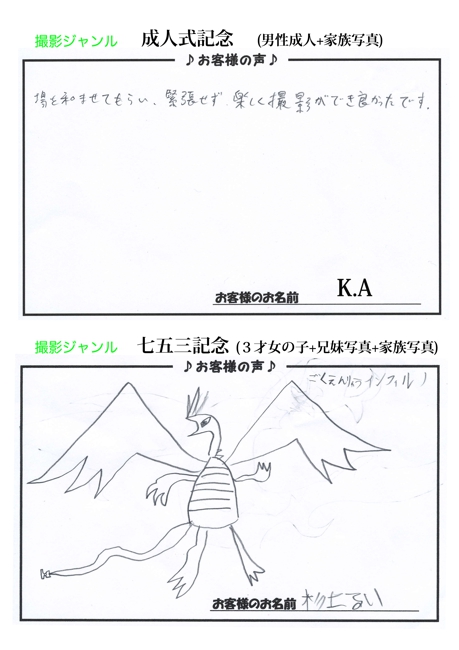 撮影ジャンル 成人式記念 (男性成人+家族写真)
♪お客様の声♪
場を和ませてもらい、緊張せず、楽しく撮影ができ良かったです。
お客様のお名前 K.A
撮影ジャンル 七五三記念 (3才女の子+兄妹写真+家族写真)
♪お客様の声♪
ごくえんりゅうインフィル
お客様のお名前